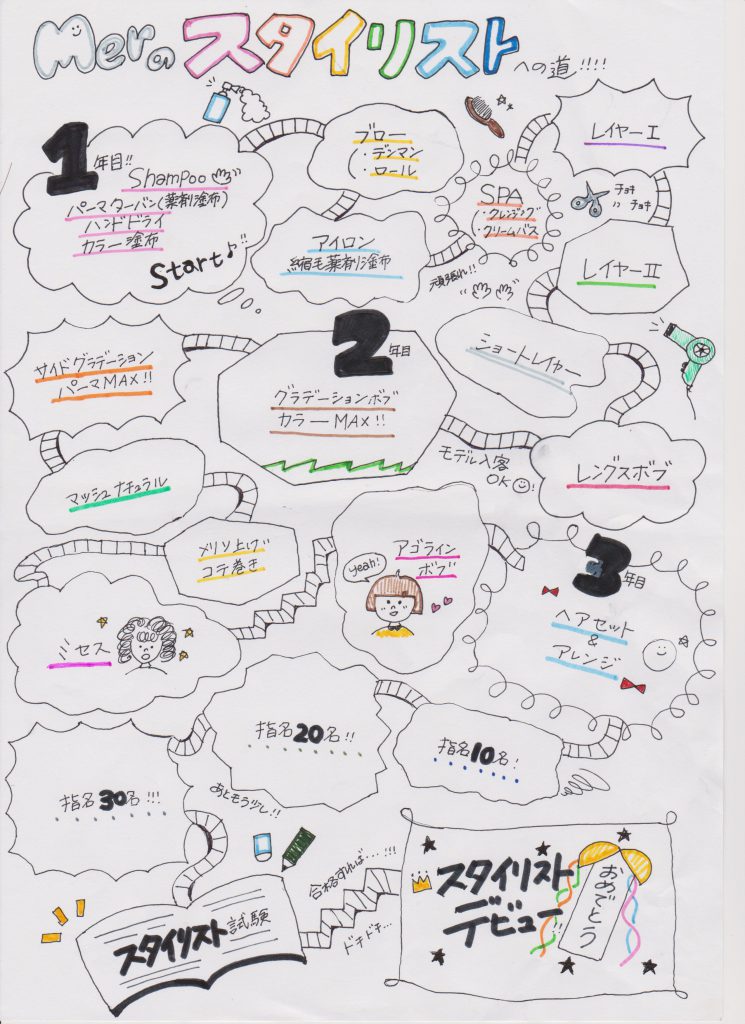 Merの スタイリストへの道!!!!
1年目!!
Shampoo
パーマターバン(薬剤塗布)
ハンドドライ
カラー塗布
Start♪!!
ブロー
(・デンマン
・ロール
アイロン
縮毛薬剤塗布
SPA
(・クレンジング
・クリームバス
頑張れ!!
レイヤーI
チョキ
チョキ
レイヤーII
ショートレイヤー
レングスボブ
モデル入客
OK!
2年目
グラデーションボブ
カラーMAX!!
サイドグラデーション
パーマMAX!!
マッシュナチュラル
メリソ上げ
コテ巻き
ミセス
アゴライン
ボブ
yeah!
3年目
ヘアセット
&
アレンジ
指名10名!
指名20名!!
指名30名!!!
あともう少し!!
スタイリスト試験
合格すれば…!!!
ドキドキ…
スタイリスト
デビュー!!
おめでとう